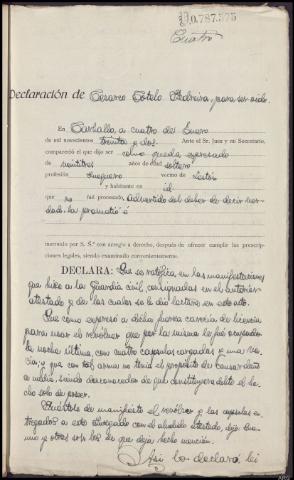 0.787.575
Cuatro
Declaración de Cesareo Cotelo Pedreira, para ser oido.
En Carballo, a cuatro de Enero
de mil novecientos treinta y dos. Ante el Sr. Juez y su Secretario,
compareció el que dijo ser como queda expresado
de veintitres años de edad soltero
profesión vecino de
y habitante en id.
que no fué procesado, advertido del deber de decir ver-
dad, la prometió á
instruído por S. S.ª con arreglo a derecho, después de ofrecer cumplir las prescrip-
ciones legales, siendo examinado convenientemente.
DECLARA: Que se ratifica en las manifestaciones
que hizo a la Guardia Civil, consignadas en el anterior
atestado y de las cuales se le dió lectura en este acto.
Que como expresó a dicha fuerza carecía de licencia
para usar el revólver que por la misma le fué ocupado
la noche última, con cuatro capsulas cargadas y una va-
cía, y que con tal arma no tenía el propósito de causar daño
a nadie, siendo desconocedor de que constituyera delito el he-
cho solo de poseer.
Puéstole de manifiesto el revólver y las capsulas en-
tregados a este Juzgado con el aludido atestado, dijo: Que
uno y otras son los de que deja hecha mención.
Así lo declaró, leí